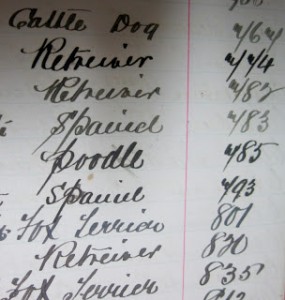 Cattle Dog 764
Retreiver 774
Retreiver 782
Spaniel 783
Poodle 785
Spaniel 793
Fox Terrier 801
Retreiver
Fox Terrier 835